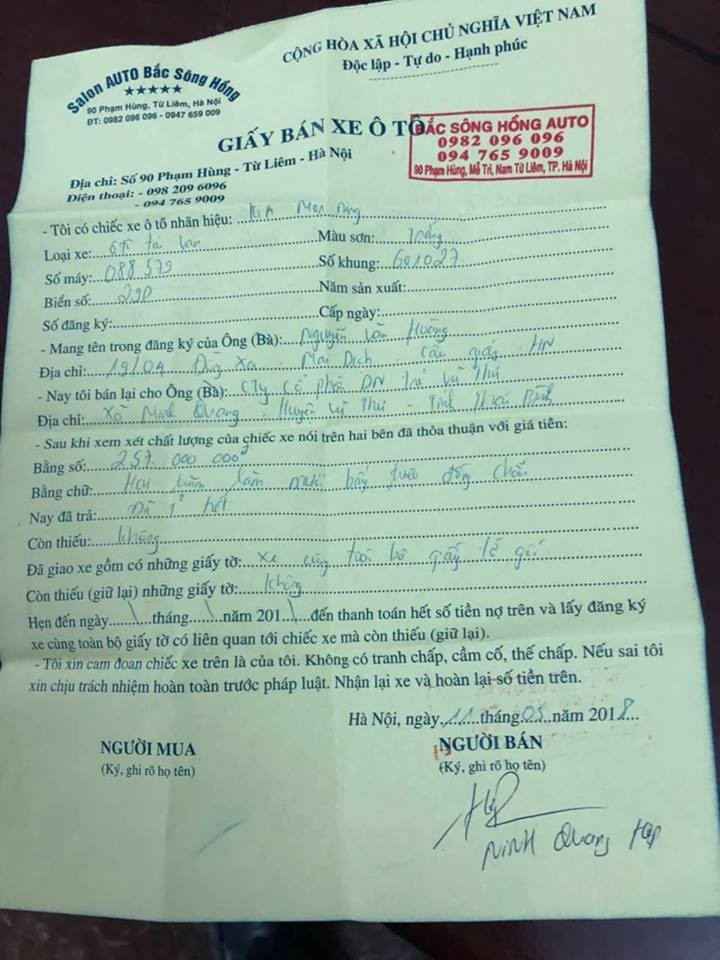 Salon AUTO Bắc Sông Hồng
★★★★★
90 Phạm Hùng, Từ Liêm, Hà Nội
ĐT: 0982 096 096 - 0947 659 009
CỘNG HÒA XÃ HỘI CHỦ NGHĨA VIỆT NAM
Độc lập - Tự do - Hạnh phúc
GIẤY BÁN XE Ô TÔ
BẮC SÔNG HỒNG AUTO
0982 096 096
094 765 9009
90 Phạm Hùng, Mễ Trì, Nam Từ Liêm, TP. Hà Nội
Địa chỉ: Số 90 Phạm Hùng - Từ Liêm - Hà Nội
Điện thoại: - 098 209 6096
- 094 765 9009
- Tôi có chiếc xe ô tô nhãn hiệu: KIA Morning
Loại xe: ô tô tải van Màu sơn: Trắng
Số máy: 088579 Số khung: 601027
Biển số: 29D Năm sản xuất:
Số đăng ký: Cấp ngày:
- Mang tên trong đăng ký của Ông (Bà): Nguyễn Văn Hường
Địa chỉ: 19/04 Xa - Mai Dịch - Cầu giấy HN
- Nay tôi bán lại cho Ông (Bà): CTy Cổ phần DN trẻ Vũ Thư
Địa chỉ: Xã Minh Quang - Huyện Vũ Thư - Tỉnh Thái Bình
- Sau khi xem xét chất lượng của chiếc xe nói trên hai bên đã thỏa thuận với giá tiền:
Bằng số: 257 000 000đ
Bằng chữ: Hai trăm lăm mươi bảy triệu đồng chẵn
Nay đã trả: hết
Còn thiếu: không
Đã giao xe gồm có những giấy tờ: xe cùng toàn bộ giấy tờ gốc
Còn thiếu (giữ lại) những giấy tờ: không
Hẹn đến ngày \ tháng \ năm 201 \ đến thanh toán hết số tiền nợ trên và lấy đăng ký
xe cùng toàn bộ giấy tờ có liên quan tới chiếc xe mà còn thiếu (giữ lại).
- Tôi xin cam đoan chiếc xe trên là của tôi. Không có tranh chấp, cầm cố, thế chấp. Nếu sai tôi
xin chịu trách nhiệm hoàn toàn trước pháp luật. Nhận lại xe và hoàn lại số tiền trên.
Hà Nội, ngày 11 tháng 05 năm 2018
NGƯỜI MUA NGƯỜI BÁN
(Ký, ghi rõ họ tên) (Ký, ghi rõ họ tên)
Ninh Quang Hợp